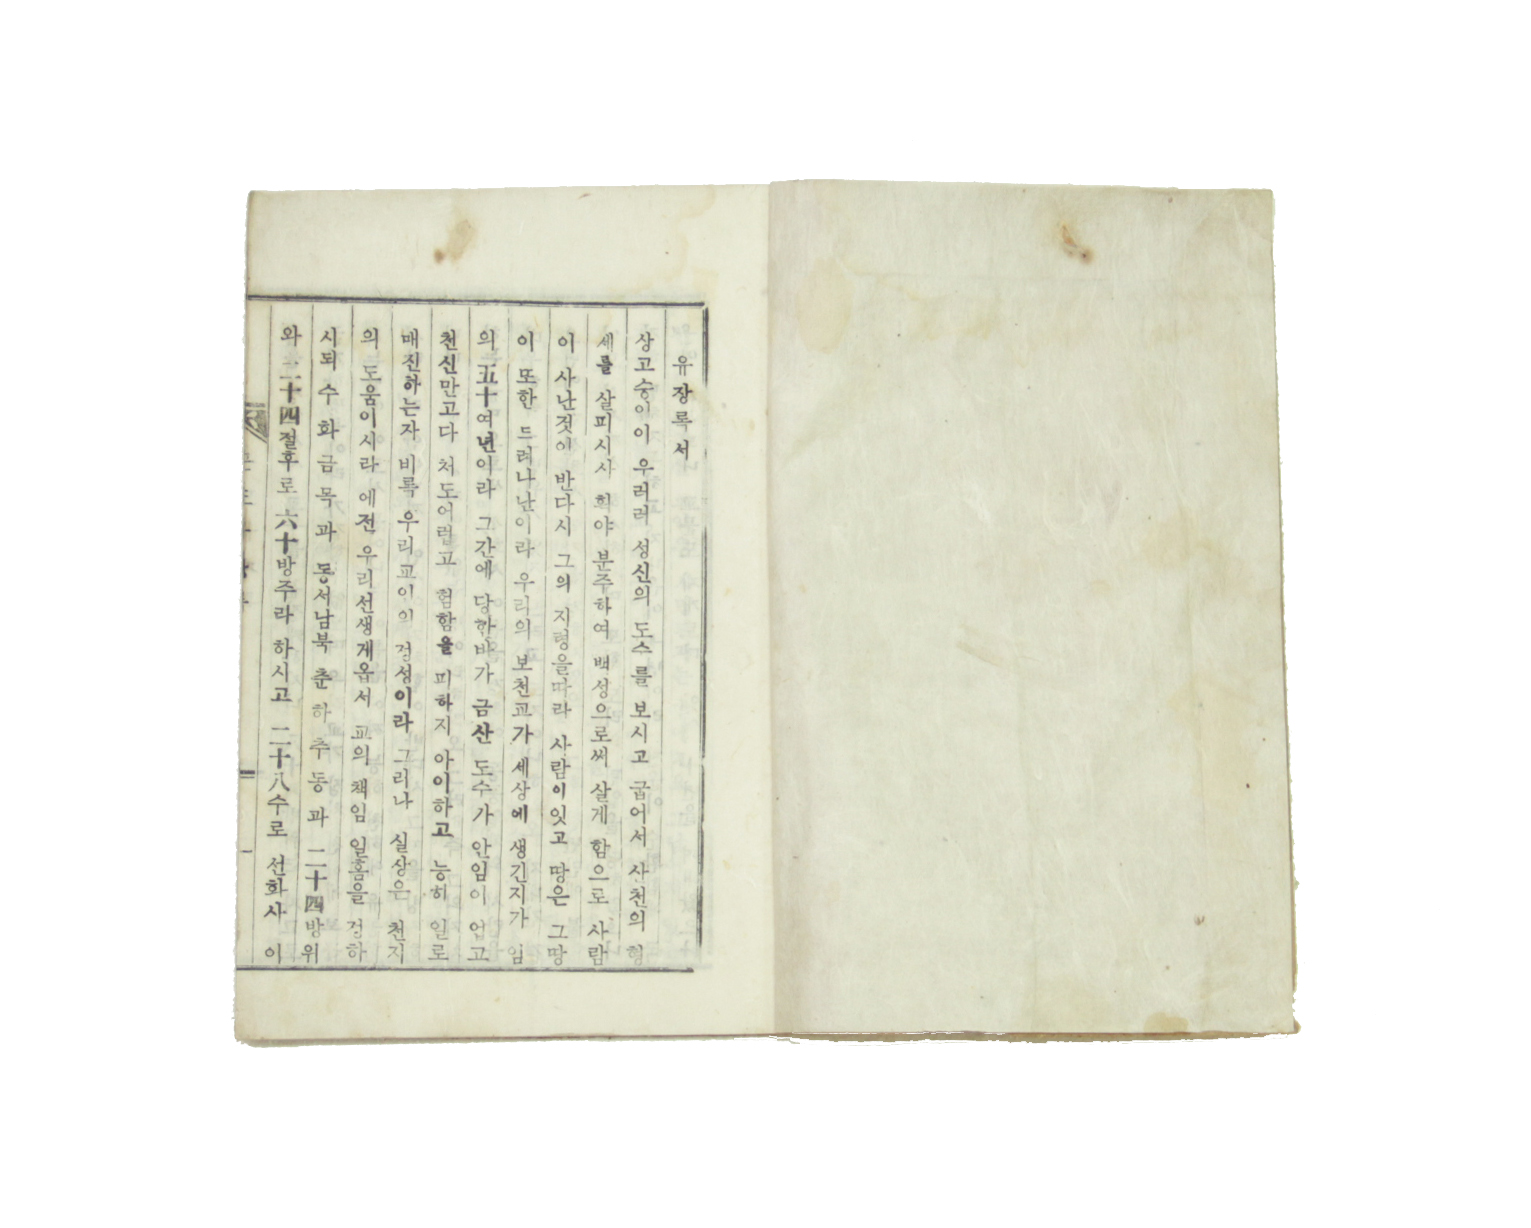 유장록서
상고숭이이 우러러 성신의 도스를 보시고 굽어서 사천의 형
세를 살피시사 희야 분주하여 백성으로써 살게 함으로 사람
이 사난젓이 반다시 그의 지령을따라 사람이잇고 땅은 그땅
이 또한 드러나난이라 우리의 보천교가 세상에 생긴지가 임
의 五十여년이라 그간에 당한바가 금산 도수가 안임이 업고
천신만고다 처도어렵고 험함을 피하지 아이하고 능히 일로
매진하는자 비록 우리교인의 정성이라 그러나 실상은 천지
의 도움이시라 에전 우리선생게옵서 교의 책임 일홈을 정하
시되 수 화 금 목 과 동서남북 춘 하 추 동 과 二十四방위
와 二十四절후로 六十방주라 하시고 二十八수로 선화사 이